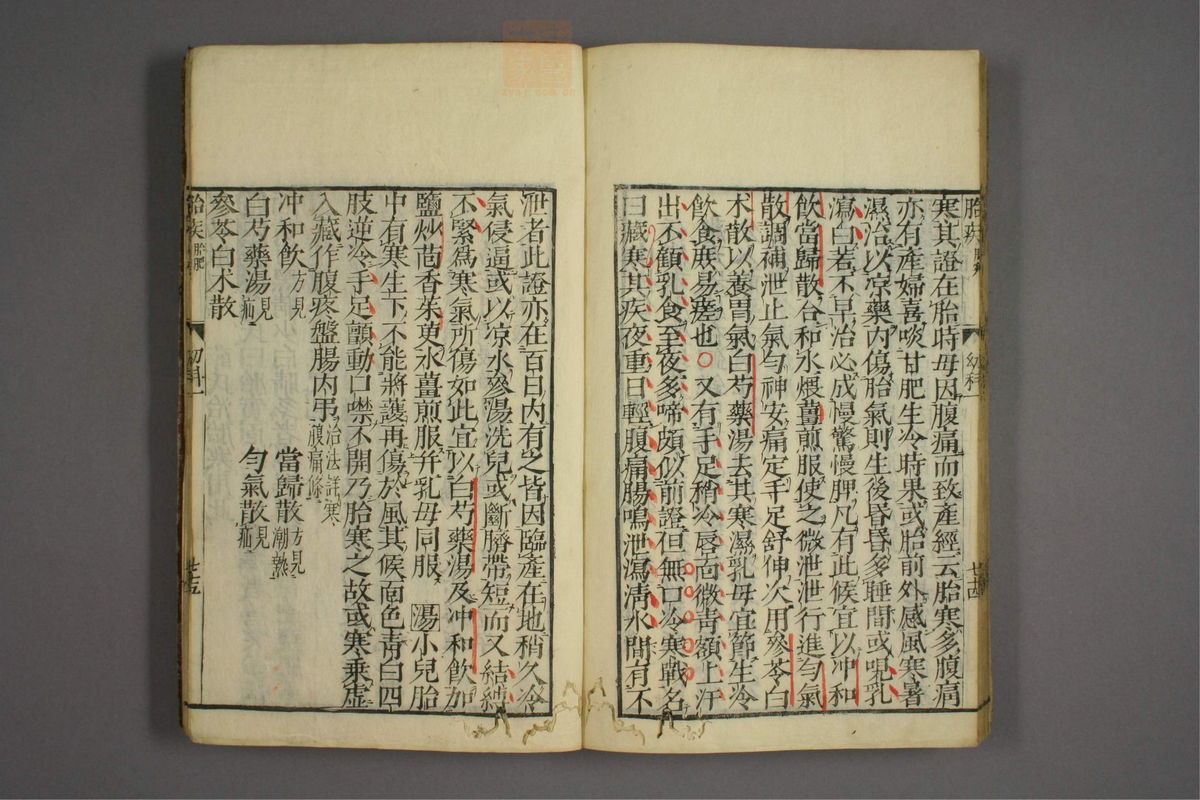 胎疾
幼科一
廿四
寒其證在胎時母因腹痛而致產經云胎寒多腹痛
亦有產婦喜啖甘肥生冷時果或胎前外感風寒暑
濕治以凉藥內傷胎氣則生後昏昏多睡間或呪乳
瀉白若不早治必成慢驚慢脾凡有此候宜以冲和
飲當歸散合和水煨薑煎服使之微泄泄行進勻氣
散調補泄止氣勻神安痛定手足舒伸次用參苓白
术散以養胃氣白芍藥湯去其寒濕乳母宜節生冷
飲食庶易瘥也○又有手足稍冷唇面微青額上汗
出不顧乳食至夜多啼頗似前證但無口冷寒戰名
曰臟寒其疾夜重日輕腹痛腸鳴泄瀉淸水間有不
泄者此證亦在百日內有之皆因臨產在地稍久冷
氣侵逼或以凉水參湯洗兒或斷臍帶短而又結縛
不緊爲寒氣所傷如此宜以白芍藥湯及冲和飲加
鹽炒茴香茱萸水薑煎服幷乳母同服 湯小兒胎
中有寒生下不能將護再傷於風其候面色靑白四
肢逆冷手足顫動口噤不開乃胎寒之故或寒乘虛
入藏作腹疼盤腸內弔治法詳寒腹痛條
冲和飲方見 當歸散方見潮熱
白芍藥湯見疝 勻氣散見疝
參苓白术散
胎疾
幼科一
廿五